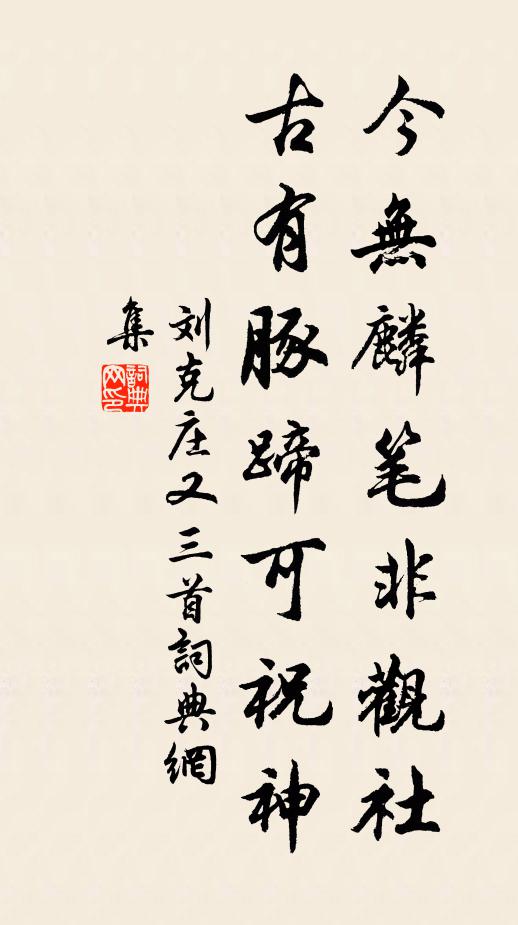 今無麟笔非觀社
古有豚蹄可祝神
刘克庄又三首詞典網
集
詞典網印